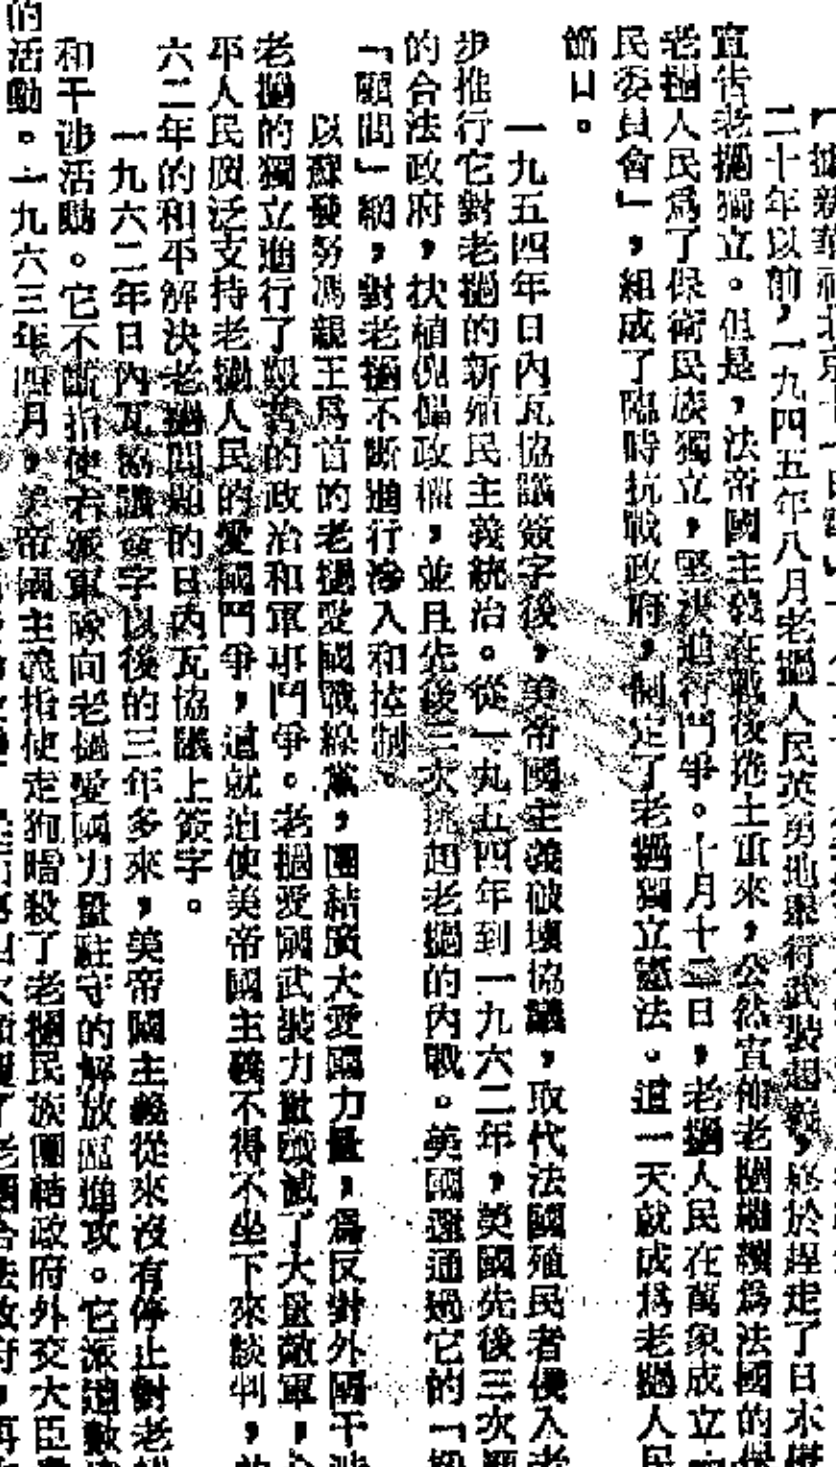 二十年以前，一九四五年八月老撾人民英勇地舉行武裝起義，終於趕走了日本
宣告老撾獨立。但是，法帝國主義在戰後捲土重來，公然宣佈老撾繼續爲法國的保
老撾人民爲了保衛民族獨立，堅決進行鬥爭。十月十二日，老撾人民在萬象成立
民委員會」，組成了臨時抗戰政府，制定了老撾獨立憲法。這一天就成爲老撾人民
節日。
一九五四年日內瓦協議簽字後，美帝國主義破壞協議，取代法國殖民者侵入老
步推行它對老撾的新殖民主義統治。從一九五四年到一九六二年，美國先後三次
的合法政府，扶植傀儡政權，並且先後三次挑起老撾的內戰。美國還通過它的「
「顧問」網，對老撾不斷進行滲入和控制。
以蘇發努馮親王爲首的老撾愛國戰綫黨，團結廣大愛國力量，爲反對外國干涉
老撾的獨立進行了艱苦的政治和軍事鬥爭。老撾愛國武裝力量殲滅了大量敵軍，
平人民廣泛支持老撾人民的愛國鬥爭，這就迫使美帝國主義不得不坐下來談判，
六二年的和平解決老撾問題的日內瓦協議上簽字。
一九六二年日內瓦協議簽字以後的三年多來，美帝國主義從來沒有停止對老撾
和干涉活動。它不斷指使右派軍隊向老撾愛國力量駐守的解放區進攻。它派遣數
的活動。一九六三年四月，美帝國主義指使走狗暗殺了老撾民族團結政府外交大臣